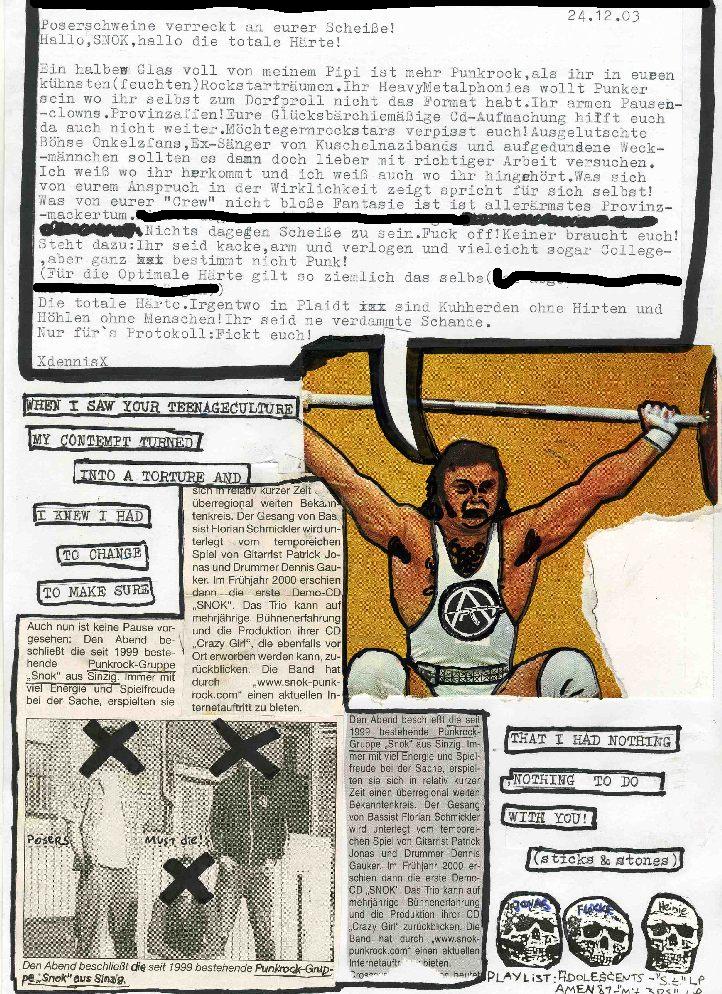 24.12.03
Poserschweine verreckt an eurer Scheiße!
Hallo,SNOK,hallo die totale Härte!
Ein halbes Glas voll von meinem Pipi ist mehr Punkrock,als ihr in euren
kühnsten(feuchten)Rockstarträumen.Ihr HeavyMetalphonies wollt Punker
sein wo ihr selbst zum Dorfproll nicht das Format habt.Ihr armen Pausen-
-clowns.Provinzaffen!Eure Glücksbärchiemäßige Cd-Aufmachung hilft euch
da auch nicht weiter.Möchtegernrockstars verpisst euch!Ausgelutschte
Böhse Onkelzfans,Ex-Sänger von Kuschelnazibands und aufgedundene Weck-
-männchen sollten es dann doch lieber mit richtiger Arbeit versuchen.
Ich weiß wo ihr herkommt und ich weiß auch wo ihr hingehört.Was sich
von eurem Anspruch in der Wirklichkeit zeigt spricht für sich selbst!
Was von eurer "Crew" nicht bloße Fantasie ist ist allerärmstes Provinz-
-mackertum.
Nichts dagegen Scheiße zu sein.Fuck off!Keiner braucht euch!
Steht dazu:Ihr seid kacke,arm und verlogen und vieleicht sogar College-
,aber ganz xxx bestimmt nicht Punk!
(Für die Optimale Härte gilt so ziemlich das selbe(
)
Die totale Härte.Irgentwo in Plaidt xxx sind Kuhherden ohne Hirten und
Höhlen ohne Menschen!Ihr seid ne verdammte Schande.
Nur für`s Protokoll:Fickt euch!
XdennisX
WHEN I SAW YOUR TEENAGECULTURE
MY CONTEMPT TURNED
INTO A TORTURE AND
I KNEW I HAD
TO CHANGE
TO MAKE SURE
sich in relativ kurzer Zeit
überregional weiten Bekann-
tenkreis. Der Gesang von Bas-
sist Florian Schmickler wird un-
terlegt vom temporeichen
Spiel von Gitarrist Patrick Jo-
nas und Drummer Dennis Gau-
ker. Im Frühjahr 2000 erschien
dann die erste Demo-CD
„SNOK". Das Trio kann auf
mehrjährige Bühnenerfahrung
und die Produktion ihrer CD
„Crazy Girl", die ebenfalls vor
Ort erworben werden kann, zu-
rückblicken. Die Band hat
durch „www.snok-punk-
rock.com" einen aktuellen In-
ternetauftritt zu bieten.
Auch nun ist keine Pause vor-
gesehen: Den Abend be-
schließt die seit 1999 beste-
hende Punkrock-Gruppe
„Snok" aus Sinzig. Immer mit
viel Energie und Spielfreude
bei der Sache, erspielten sie
POSERS
MUST die!
Den Abend beschließt die seit 1999 bestehende Punkrock-Grup-
pe „Snok" aus Sinzig.
Den Abend beschließt die seit
1999 bestehende Punkrock-
Gruppe „Snok" aus Sinzig. Im-
mer mit viel Energie und Spiel-
freude bei der Sache, erspiel-
ten sie sich in relativ kurzer
Zeit einen überregional weiten
Bekanntenkreis. Der Gesang
von Bassist Florian Schmickler
wird unterlegt vom temporei-
chen Spiel von Gitarrist Patrick
Jonas und Drummer Dennis
Gauker. Im Frühjahr 2000 er-
schien dann die erste Demo-
CD „SNOK". Das Trio kann auf
mehrjährige Bühnenerfahrung
und die Produktion ihrer CD
„Crazy Girl" zurückblicken. Die
Band hat durch „www.snok-
punkrock.com" einen aktuellen
Internetauftritt zu bieten.
A
THAT I HAD NOTHING
NOTHING TO DO
WITH YOU!
(sticks & stones)
JONAS
FLOCKE
Heinie
PLAYLIST: ADOLESCENTS-"S.t" LP
AMEN 87-